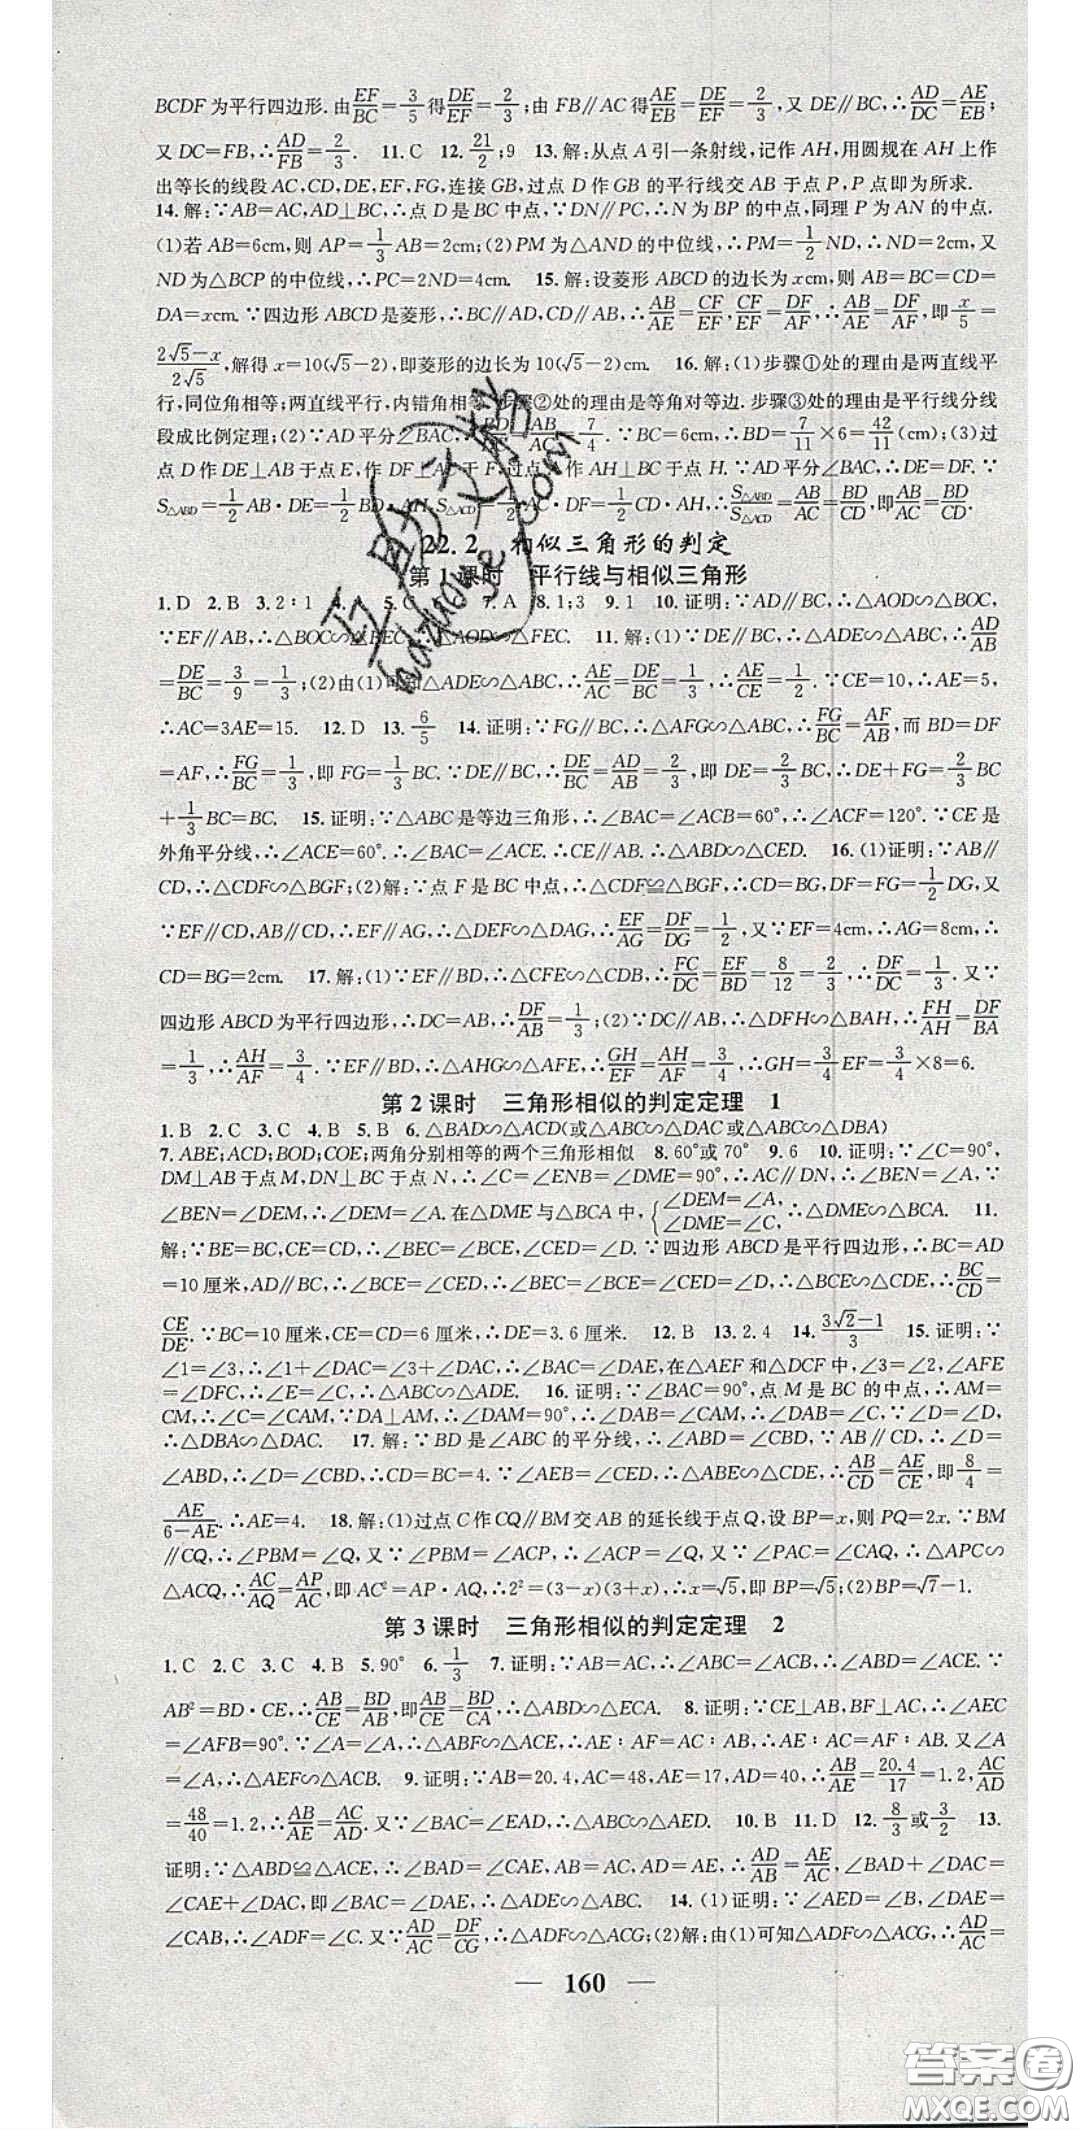 BCDF为平行四边形.由EF/BC=3/5得DE/EF=2/3;由FB∥AC得AE/EB=DE/EF=2/3,又DE∥BC,∴AD/DC=AE/EB;
又DC=FB,∴AD/FB=2/3. 11.C 12.21/2;9 13.解:从点A引一条射线,记作AH,用圆规在AH上作
出等长的线段AC,CD,DE,EF,FG,连接GB,过点D作GB的平行线交AB于点P,P点即为所求.
14.解:∵AB=AC,AD⊥BC,∴点D是BC中点,∵DN∥PC,∴N为BP的中点,同理P为AN的中点.
(1)若AB=6cm,则AP=1/3AB=2cm;(2)PM为△AND的中位线,∴PM=1/2ND,∴ND=2cm,又
ND为△BCP的中位线,∴PC=2ND=4cm. 15.解:设菱形ABCD的边长为xcm,则AB=BC=CD=
DA=xcm.∵四边形ABCD是菱形,∴BC∥AD,CD∥AB,∴AB/AE=CF/EF,CF/EF=DF/AF,∴AB/AE=DF/AF,即x/5=
(2√5-x)/2√5,解得x=10(√5-2),即菱形的边长为10(√5-2)cm. 16.解:(1)步骤①处的理由是两直线平
行,同位角相等;两直线平行,内错角相等.步骤②处的理由是等角对等边.步骤③处的理由是平行线分线
段成比例定理;(2)∵AD平分∠BAC,∴BD AB/AC=7/4.∵BC=6cm,∴BD=7/11×6=42/11(cm);(3)过
点D作DE⊥AB于点E,作DF⊥AC于F,过点 作AH⊥BC于点H.∵AD平分∠BAC,∴DE=DF.∵
S△ABD=1/2AB·DE=1/2BD·AH,S△ACD=1/2AC·DF=1/2CD·AH,∴S△ABD/S△ACD=AB/AC=BD/CD,即AB/AC=BD/CD.
22.2 相似三角形的判定
第1课时 平行线与相似三角形
1.D 2.B 3.2∶1 4. 5.C 7.A 8.1;3 9.1 10.证明:∵AD∥BC,∴△AOD∽△BOC,
∵EF∥AB,∴△BOC∽△FEC,∴△AOD∽△FEC. 11.解:(1)∵DE∥BC,∴△ADE∽△ABC,∴AD/AB
=DE/BC=3/9=1/3;(2)由(1)可知△ADE∽△ABC,∴AE/AC=DE/BC=1/3,∴AE/CE=1/2.∵CE=10,∴AE=5,
∴AC=3AE=15. 12.D 13.6/5 14.证明:∵FG∥BC,∴△AFG∽△ABC,∴FG/BC=AF/AB,而BD=DF
=AF,∴FG/BC=1/3,即FG=1/3BC.∵DE∥BC,∴DE/BC=AD/AB=2/3,即DE=2/3BC,∴DE+FG=2/3BC
+1/3BC=BC. 15.证明:∵△ABC是等边三角形,∴∠BAC=∠ACB=60°,∴∠ACF=120°.∵CE是
外角平分线,∴∠ACE=60°.∴∠BAC=∠ACE.∴CE∥AB.∴△ABD∽△CED. 16.(1)证明:∵AB∥
CD,∴△CDF∽△BGF;(2)解:∵点F是BC中点,∴△CDF≌△BGF,∴CD=BG,DF=FG=1/2DG,又
∵EF∥CD,AB∥CD,∴EF∥AG,∴△DEF∽△DAG,∴EF/AG=DF/DG=1/2,又∵EF=4cm,∴AG=8cm,∴
CD=BG=2cm. 17.解:(1)∵EF∥BD,∴△CFE∽△CDB,∴FC/DC=EF/BD=8/12=2/3,∴DF/DC=1/3.又∵
四边形ABCD为平行四边形,∴DC=AB,∴DF/AB=1/3;(2)∵DC∥AB,∴△DFH∽△BAH,∴FH/AH=DF/BA
=1/3,∴AH/AF=3/4.∵EF∥BD,∴△AHG∽△AFE,∴GH/EF=AH/AF=3/4,∴GH=3/4EF=3/4×8=6.
第2课时 三角形相似的判定定理 1
1.B 2.C 3.C 4.B 5.B 6.△BAD∽△ACD(或△ABC∽△DAC或△ABC∽△DBA)
7.ABE;ACD;BOD;COE;两角分别相等的两个三角形相似 8.60°或70° 9.6 10.证明:∵∠C=90°,
DM⊥AB于点M,DN⊥BC于点N,∴∠C=∠ENB=∠DME=90°,∴AC∥DN,∴∠BEN=∠A,∵
∠BEN=∠DEM,∴∠DEM=∠A.在△DME与△BCA中,{∠DEM=∠A,∠DME=∠C,∴△DME∽△BCA. 11.
解:∵BE=BC,CE=CD,∴∠BEC=∠BCE,∠CED=∠D.∵四边形ABCD是平行四边形,∴BC=AD
=10厘米,AD∥BC,∴∠BCE=∠CED,∴∠BEC=∠BCE=∠CED=∠D,∴△BCE∽△CDE,∴BC/CD=
CE/DE.∵BC=10厘米,CE=CD=6厘米,∴DE=3.6厘米. 12.B 13.2.4 14.(3√2-1)/3 15.证明:∵
∠1=∠3,∴∠1+∠DAC=∠3+∠DAC,∴∠BAC=∠DAE,在△AEF和△DCF中,∠3=∠2,∠AFE
=∠DFC,∴∠E=∠C,∴△ABC∽△ADE. 16.证明:∵∠BAC=90°,点M是BC的中点,∴AM=
CM,∴∠C=∠CAM,∵DA⊥AM,∴∠DAM=90°,∴∠DAB=∠CAM,∴∠DAB=∠C,∵∠D=∠D,
∴△DBA∽△DAC. 17.解:∵BD是∠ABC的平分线,∴∠ABD=∠CBD,∵AB∥CD,∴∠D=
∠ABD,∴∠D=∠CBD,∴CD=BC=4.∵∠AEB=∠CED,∴△ABE∽△CDE,∴AB/CD=AE/CE,即8/4=
AE/(6-AE).∴AE=4. 18.解:(1)过点C作CQ∥BM交AB的延长线于点Q,设BP=x,则PQ=2x.∵BM
∥CQ,∴∠PBM=∠Q,又∵∠PBM=∠ACP,∴∠ACP=∠Q,又∵∠PAC=∠CAQ,∴△APC∽
△ACQ,∴AC/AQ=AP/AC,即AC²=AP·AQ,∴2²=(3-x)(3+x),∴x=√5,即BP=√5;(2)BP=√7-1.
第3课时 三角形相似的判定定理 2
1.C 2.C 3.C 4.B 5.90° 6.1/3 7.证明:∵AB=AC,∴∠ABC=∠ACB,∴∠ABD=∠ACE.∵
AB²=BD·CE,∴AB/CE=BD/AB,即AB/CE=BD/CA,∴△ABD∽△ECA. 8.证明:∵CE⊥AB,BF⊥AC,∴∠AEC
=∠AFB=90°.∵∠A=∠A,∴△ABF∽△ACE,∴AE∶AF=AC∶AB,∴AE∶AC=AF∶AB.又∵∠A
=∠A,∴△AEF∽△ACB. 9.证明:∵AB=20.4,AC=48,AE=17,AD=40,∴AB/AE=20.4/17=1.2,AC/AD
=48/40=1.2,∴AB/AE=AC/AD.又∵∠BAC=∠EAD,∴△ABC∽△AED. 10.B 11.D 12.8/3或3/2 13.
证明:∵△ABD≌△ACE,∴∠BAD=∠CAE,AB=AC,AD=AE,∴AD/AB=AE/AC,∠BAD+∠DAC=
∠CAE+∠DAC,即∠BAC=∠DAE,∴△ADE∽△ABC. 14.(1)证明:∵∠AED=∠B,∠DAE=
∠CAB,∴∠ADF=∠C.又∵AD/AC=DF/CG,∴△ADF∽△ACG;(2)解:由(1)可知△ADF∽△ACG,∴AD/AC=
— 160 —
答案圈
MXQE.COM